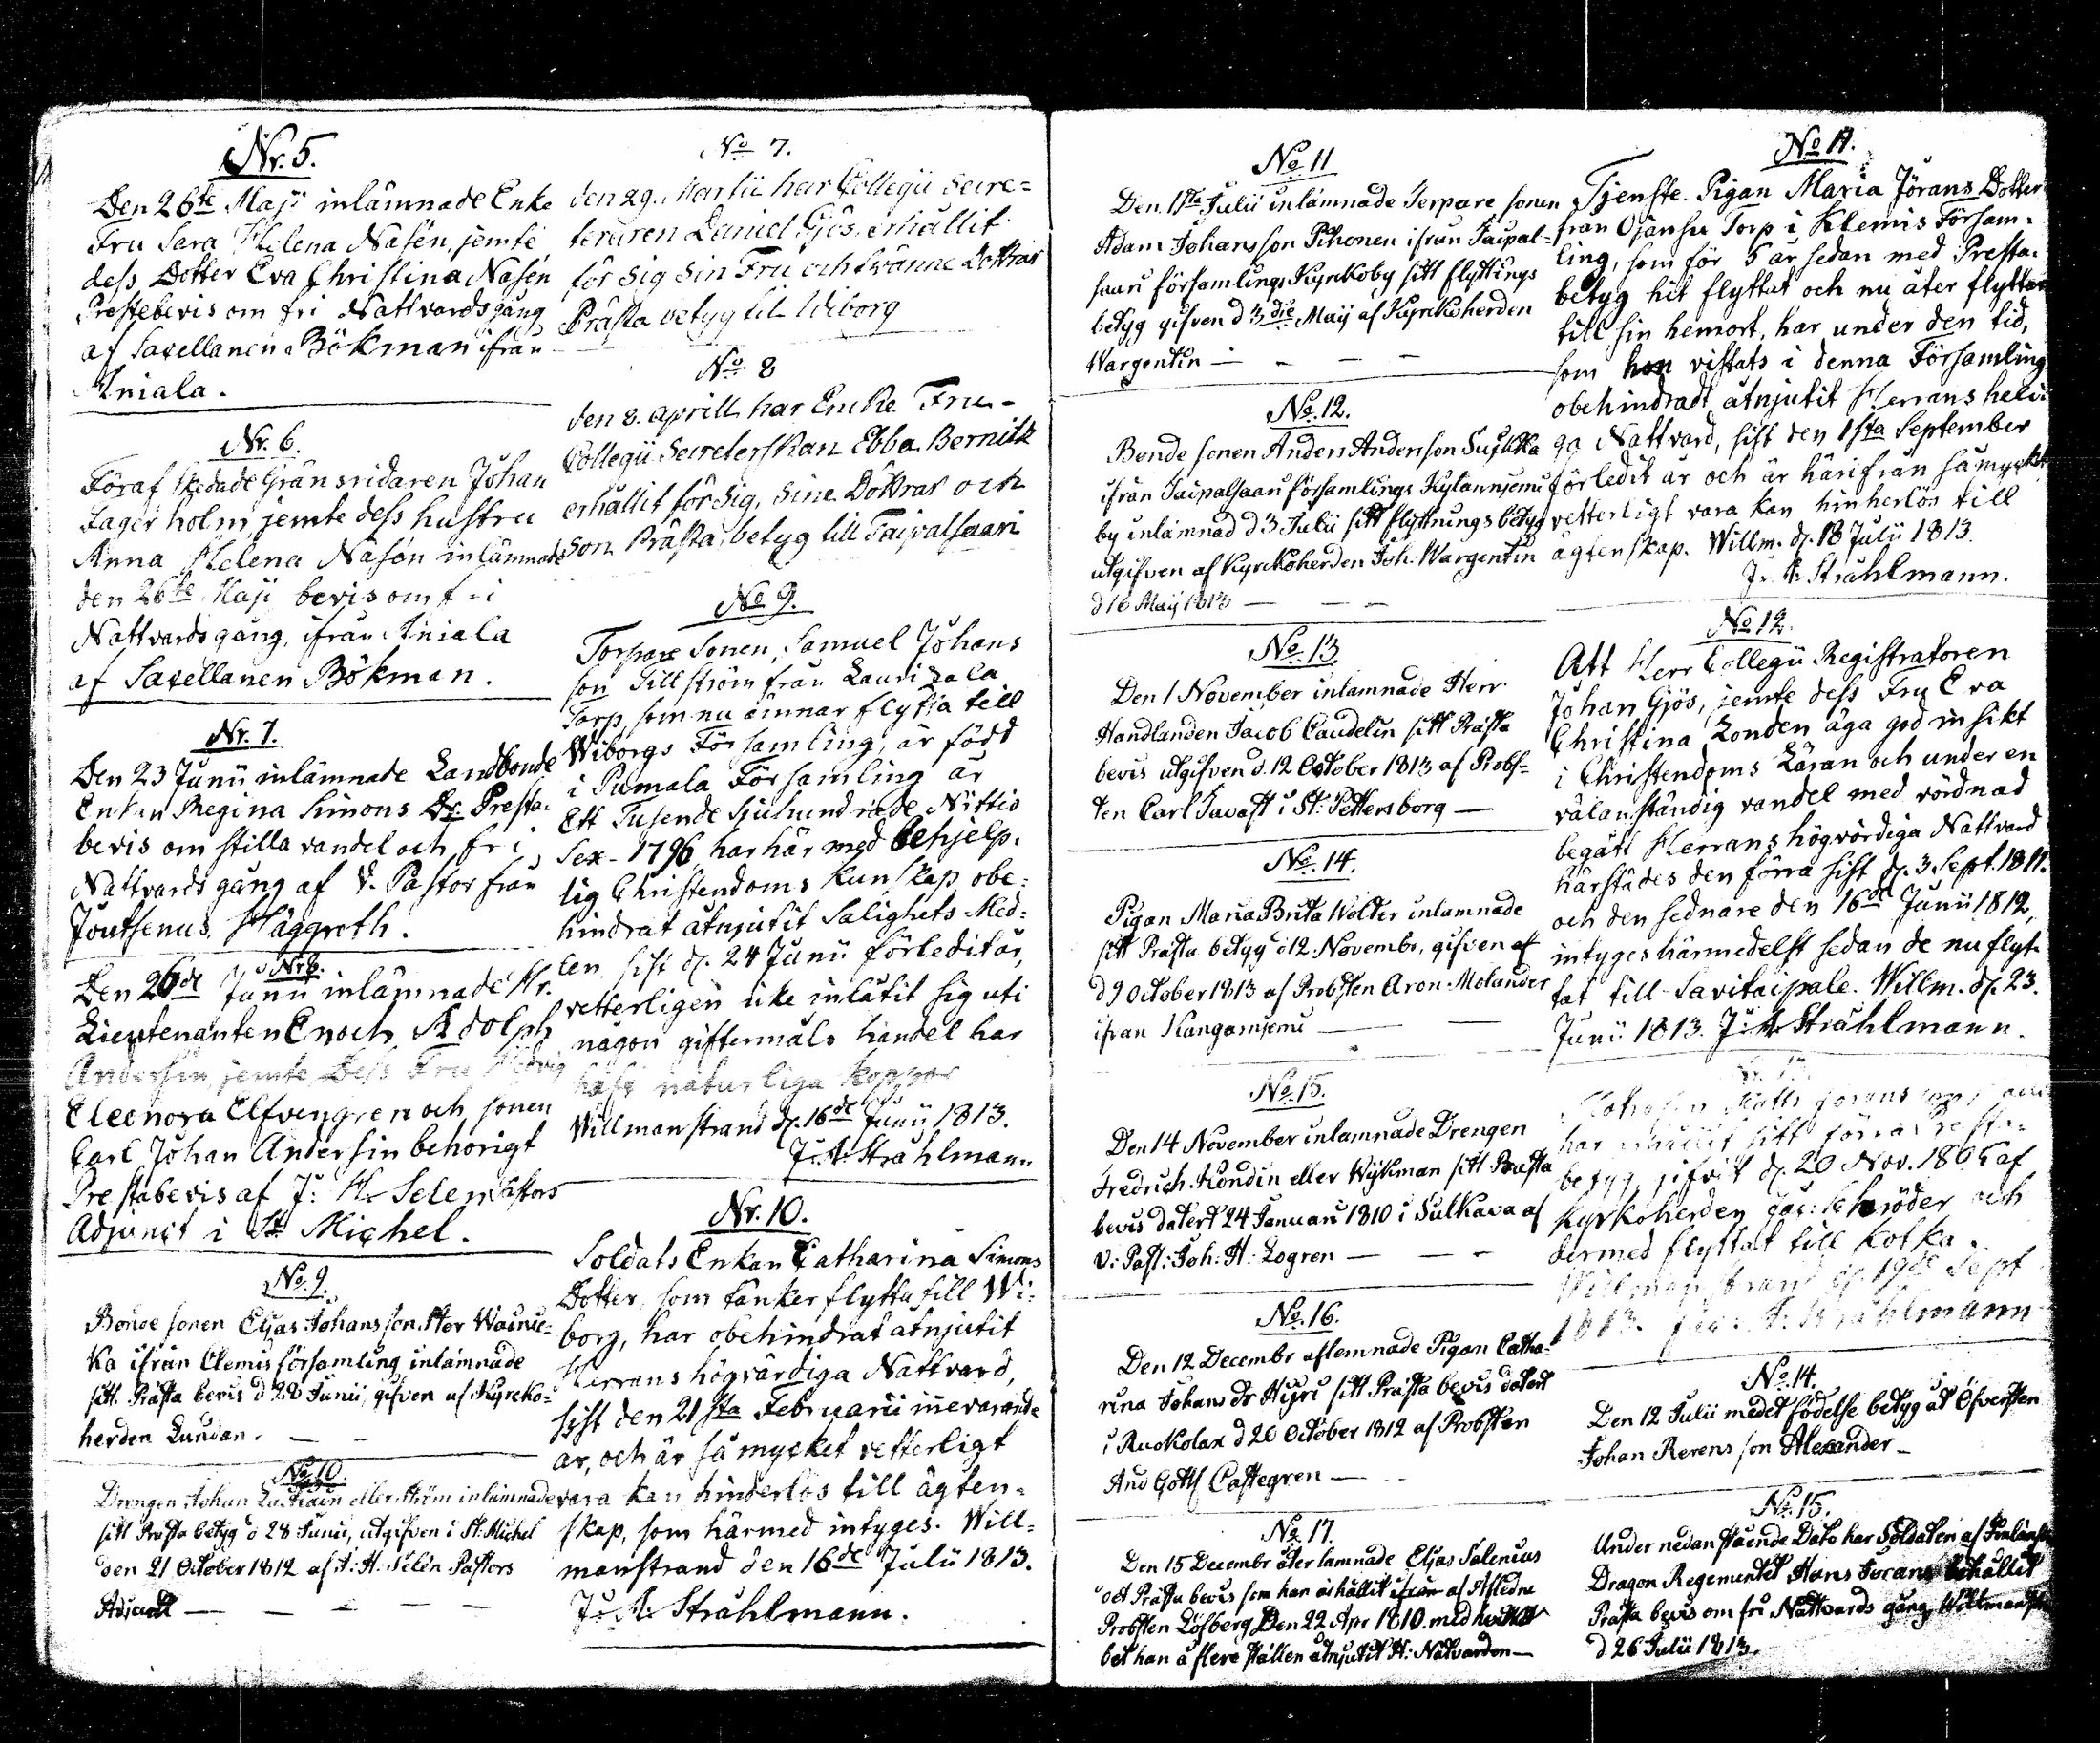 Nr. 5.
Den 26te Maji inlämnade Enke
Fru Sara Helena Nasén, jemte
dess Dotter Eva Christina Nasén
Prestebevis om fri Nattvardsgång
af Sacellanen Bökman ifrån
Aniala.
Nr. 6.
Föraf skedade Gränsridaren Johan
Lagerholm, jemte dess hustru
Anna Helena Nasén inlämnade
den 26te Maji bevis om fri
Nattvardsgång, ifrån Aniala
af Sacellanen Bökman.
Nr. 7.
Den 23 Junii inlämnade Landbonde
Enkan Regina Simons Dr. Presta-
bevis om stilla vandel och fri
Nattvardsgång af V. Pastor från
Joutsenus, Häggroth.
Nr 8.
Den 26de Junii inlämnade Hr.
Lieutenanten Enoch Adolph
Andersin jemte Dess Fru
Eleonora Elfvengren och sonen
Carl Johan Andersin behörigt
Prestabevis af J: H. Selen Pastors
Adjunct i St. Michel.
No. 9.
Bonde sonen Eljas Johansson Wainic-
ka ifrån Clemis församling inlämnade
sitt Prästa bevis d 28 Junii, gifven af Kyrko-
herden Lundan. —
No. 10.
Drengen Johan eller Ström inlämnade
sitt Prästa betyg d 28 Junii, utgifven i St. Michel
den 21 October 1812 af J: H: Selén Pastors
Adjunct — — — — —
No 7.
den 29. Martii har Collegii Secre-
teraren Daniel Gjös, erhållit
för Sig Sin Fru och tvänne Döttrar
Prästa betyg til Wiborg
No 8
den 8. aprill har Encke Fru-
Collegii Secreterskan Ebba Bernitz
erhållit för Sig, Sine Döttrar och
Son Prästa betyg till Taipalsaari
No 9.
Torpare Sonen, Samuel Johans
son Tillström från Lauri
Torp, som nu ämnar flytta till
Wiborgs Församling, är född
i Pumala Församling år
Ett Tusende Sjuhundrade Nittio
Sex - 1796, har här med behjelp-
lig Christendoms Kunskap obe-
hindrat åtnjutit Salighets Med-
len sist d. 24 Junii förledit år,
vetterligen icke inlåtit sig uti
någon giftermåls handel har
haft naturliga Koppor
Willmanstrand d. 16de Junii 1813.
J: A: Strahlmann
Nr. 10.
Soldats Enkan Catharina Simons
Dotter, som tänker flytta till Wi-
borg, har obehindrat åtnjutit
Herrans högvärdiga Nattvard,
sist den 21sta Februarii innevarande
år, och är så mycket vetterligt
vara kan hinderlös till ägten-
skap, som härmed intyges. Will-
manstrand den 16de Julii 1813.
J: A: Strahlmann.
No 11
Den 1sta Julii inlämnade Torpare sonen
Adam Johansson Pihonen ifrån Taipal-
saari församlings Kyrckoby sitt flyttings
betyg gifven d 3die Maij af Kyrckoherden
Wargentin — — — —
No. 12.
Bonde sonen Anders Andersson
ifrån Taipalsaari församlings Kylänniemi
by inlämnad d 3 Julii sitt flyttningsbetyg
utgifven af Kyrckoherden Joh: Wargentin
d 16 Maij 1813 — — —
No. 13.
Den 1 November inlämnade Herr
Handlanden Jacob Caudelin sitt Prästa
bevis utgifven d. 12 October 1813 af Probs-
ten Carl Tavast i St: Pettersborg —
No. 14.
Pigan Maria Brita Wolter inlämnade
sitt Prästa betyg d 12. Novembr, gifven af
d 9 October 1813 af Probsten Aron Molander
ifrån Kangasniemi — —
No. 15.
Den 14 November inlämnade Drengen
Fredrich Rondin eller Wykman sitt Prästa
bevis datert 24 Januari 1810 i Sulkava af
V: Past: Joh: H: Logren — — -
No. 16.
Den 12 Decembr aflemnade Pigan Catha-
rina Johans Dr sitt Prästa bevis datert
i Ruokolax d 20 October 1812 af Probsten
And Gottl Castegren —
No 17.
Den 15 Decembr åter lämnade Eljas Salenius
det Prästa bevis som han erhållit ifrån af Afledne
Probsten Löfberg Den 22 Apr 1810. med hvilket
bet han å flere ställen åtnjutit H: Nattvarden —
No 11.
Tjenste-Pigan Maria Jörans Dotter
från Torp i Klemis Försam-
ling, som för 5 år sedan med Presta-
betyg hit flyttat och nu åter flyttar
till sin hemort, har under den tid,
som hon vistats i denna Församling
obehindradt åtnjutit Herrans heli-
ga Nattvard, sist den 1sta September
förledit år och är härifrån så mycket
vetterligt vara kan hinherlös till
ägtenskap. Willm. d. 18 Julii 1813.
J: A: Strahlmann.
No 12.
Att Herr Collegii Registratoren
Johan Gjös, jemte dess Fru Eva
Christina Zonden äga god insikt
i Christendoms Läran och under en
välanständig vandel med vördnad
begått Herrans högvördiga Nattvard
härstädes den förra sist d. 3. Sept. 1811.
och den sednare den 16de Junii 1812,
intyges härmedelst sedan de nu flyt-
tat till Savitaipale. Willm. d. 23.
Junii 1813. J: A: Strahlmann.
har erhållit sitt förra Presta-
betyg, gifvit d. 20 Nov. 1806 af
Kyrkoherden Schröder och
dermed flyttat till Kotka.
Willmanstrand d. 19de Sept
1813. J: A: Strahlmann
No. 14.
Den 12 Julii medet födelse betyg åt Öfversten
Johan Rerens son Alexander —
No. 15.
Under nedanstående Dato har Soldaten af
Dragon Regementet Hans Jörans erhållit
Prästa bevis om fri Nattvards gång,
d 26 Julii 1813.